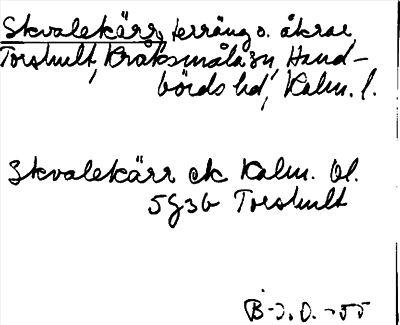 Skvalekärr, terräng o. åkrar
Torshult, Kråksmåla sn, Hand-
börds hd, Kalm. l.
Skvalekärr ek Kalm. bl.
5g3b Torshult
B-J. O. -55